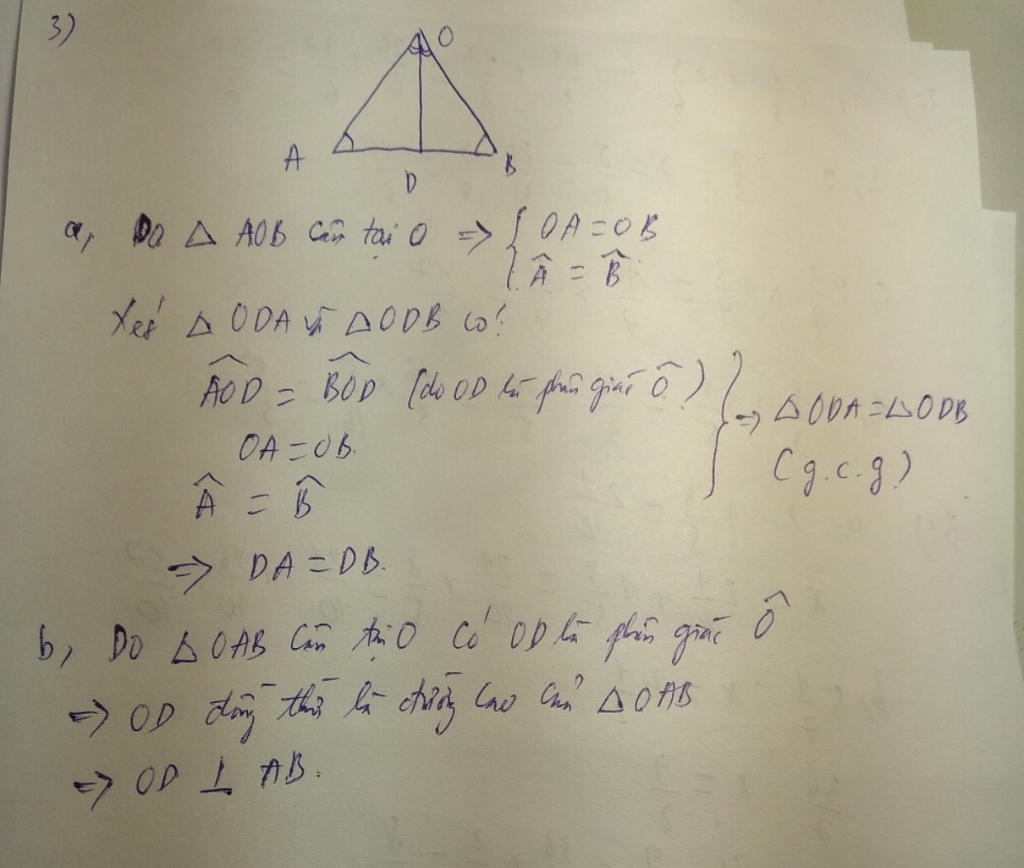 3)
O
A
D
B
a, Do △ AOB cân tại O => { OA = OB
Â = B̂
Xét △ ODA và △ ODB có:
AOD̂ = BOD̂ (do OD là phân giác Ô)
OA = OB.
Â = B̂
} => △ ODA = △ ODB
(g.c.g)
=> DA = DB.
b, Do △ OAB cân tại O có OD là phân giác Ô
=> OD đồng thời là đường cao của △ OAB
=> OD ⊥ AB.